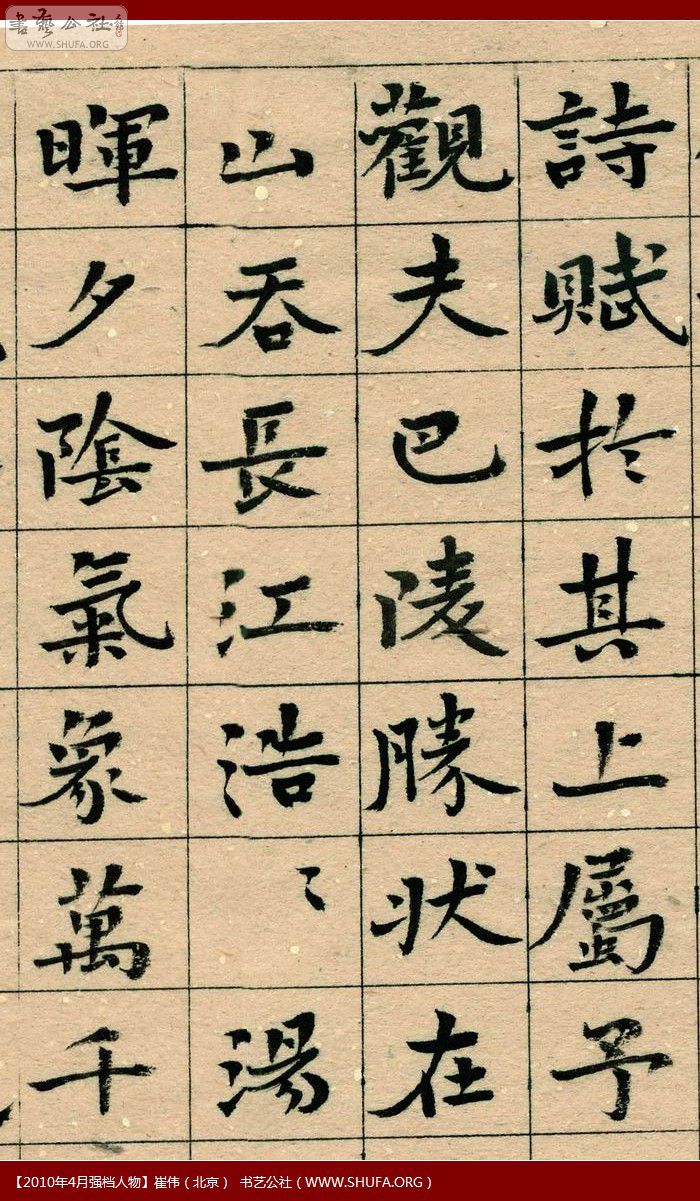 書藝公社
WWW.SHUFA.ORG
詩賦於其上屬予
觀夫巴陵勝状在
山吞長江浩〻湯
暉夕陰氣象萬千
【2010年4月强档人物】崔伟（北京） 书艺公社（WWW.SHUFA.ORG）